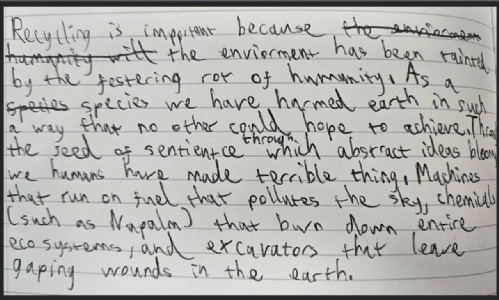 Recycling is important because the enviorment
humanity will the enviorment has been tainted
by the festering rot of humanity. As a
species species we have harmed earth in such
a way that no other could hope to achieve.
the seed of sentience through which abstract ideas bloom
we humans have made terrible thing, Machines
that run on fuel that pollutes the sky, chemicals
(such as Napalm) that burn down entire
ecosystems, and excavators that leave
gaping wounds in the earth.